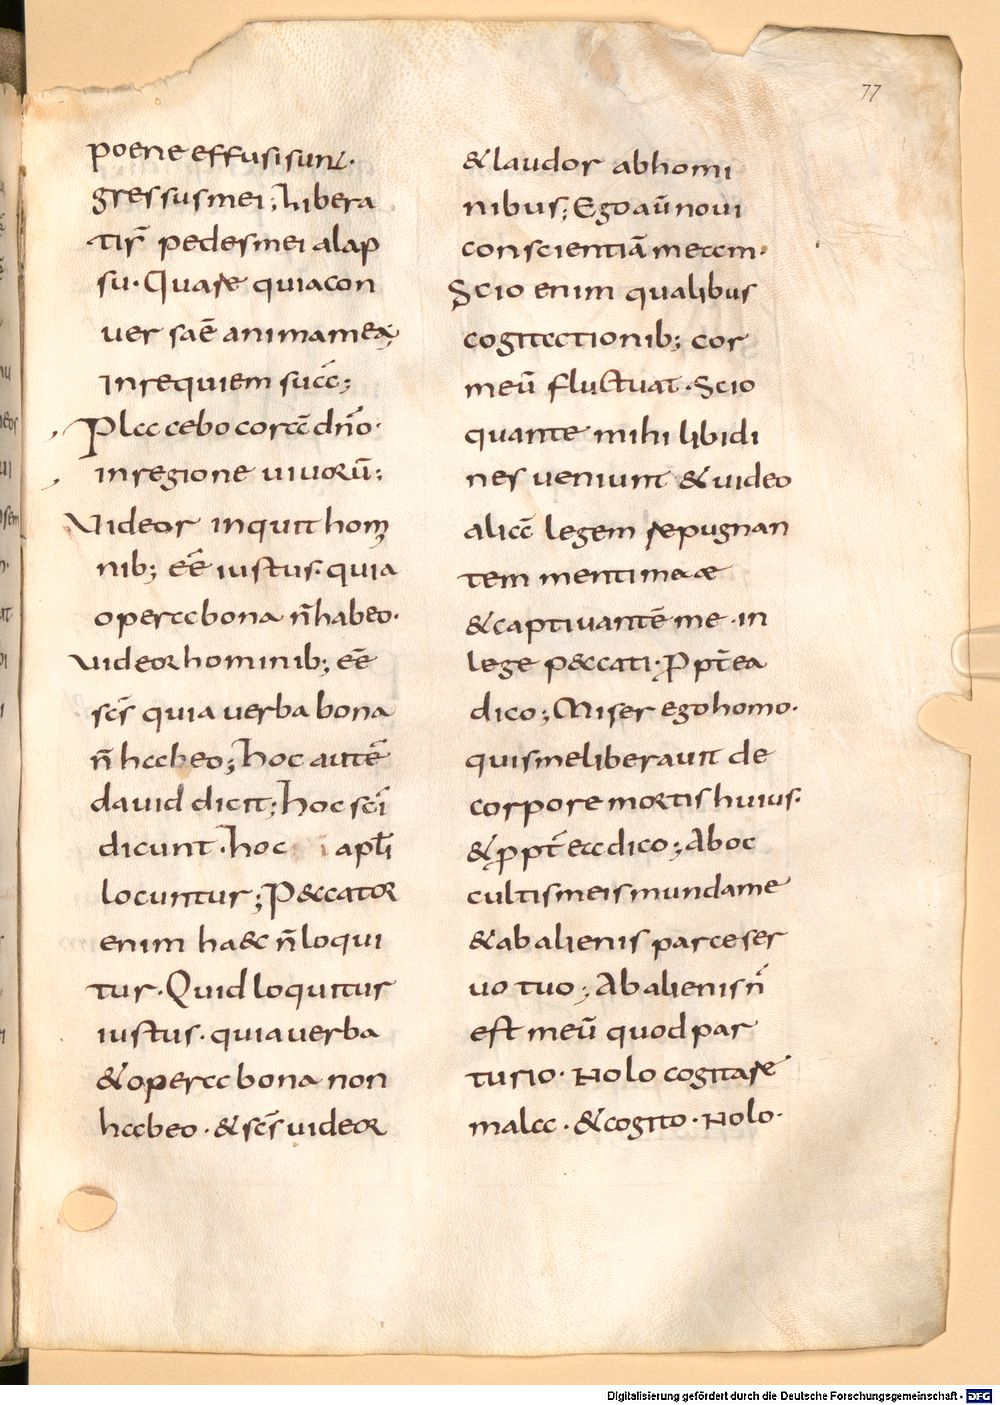 77
poene effusi sunt·
gressus mei; Libera
tis̄ pedes mei a lap
su· Quare quia con
uer sa ē anima mea;
In requiem suā;
Placebo corā dn̄o·
in regione uiuorū;
Videor inquit homi
nib; eē iustus· quia
opera bona n̄ habeo·
uideor hominib; eē
scs̄ quia uerba bona
n̄ habeo; hoc autē
dauid dicit; hoc scī
dicunt· hoc apl̄i
locuntur; P&ccator
enim haec n̄ loqui
tur· Quid loquitur
iustus· quia uerba
& opera bona non
habeo· & scs̄ uideor
& laudor ab homi
nibus; Ego aū noui
conscientiā meam·
Scio enim qualibus
cogitationib; cor
meū fluctuat· Scio
quante mihi libidi
nes ueniunt & uideo
aliā legem repugnan
tem menti meae
& captiuantē me· in
lege p&ccati· Propt̄ea
dico; Miser ego homo·
quis me liberauit de
corpore mortis huius·
& propt̄ ea dico; Ab oc
cultis meis munda me
& ab alienis parce ser
uo tuo; Ab alienis n̄
est meū quod par
turio· Nolo cogitare
mala· & cogito· Nolo·
Digitalisierung gefördert durch die Deutsche Forschungsgemeinschaft - DFG